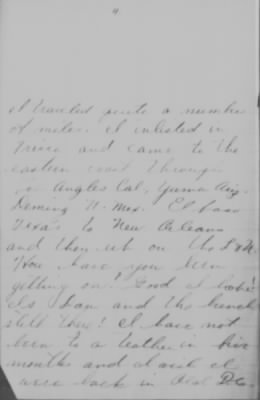 4
I traveled quite a number
of miles. I enlisted in
Frisco and came to the
eastern coast through
Angles Cal, Yuma Ariz,
Deming N. Mex. El Paso
Texas to New Orleans
and then up on the L & N.
How have you been
getting on? Good I hope!
Is Dan and the bunch
still there! I have not
been to a theater in five
months and I wish I
were back in Old D.C.